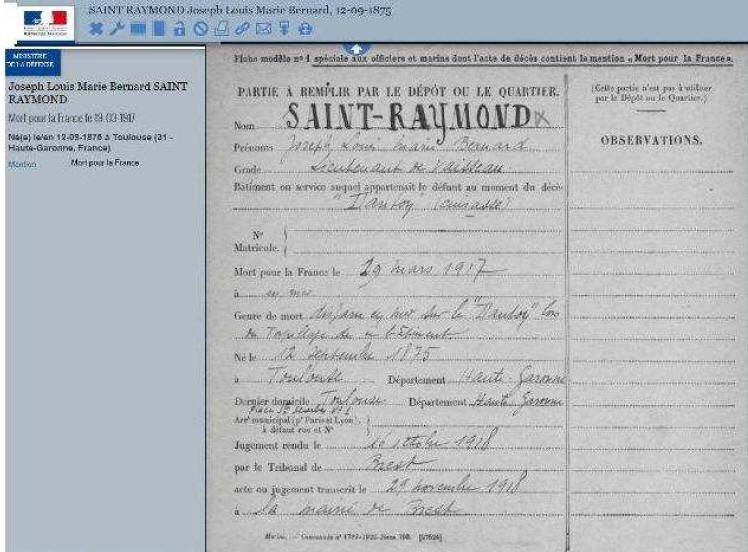 SAINT RAYMOND Joseph Louis Marie Bernard, 12-09-1875
MINISTÈRE
DE LA DÉFENSE
Joseph Louis Marie Bernard SAINT
RAYMOND
Mort pour la France le 19-03-1917
Né(e) le/en 12-09-1875 à Toulouse (31 -
Haute-Garonne, France)
Mention Mort pour la France
Fiche modèle n° 1 spéciale aux officiers et marins dont l'acte de décès contient la mention « Mort pour la France ».
PARTIE À REMPLIR PAR LE DÉPÔT OU LE QUARTIER.
Nom SAINT-RAYMOND
Prénoms Joseph Louis Marie Bernard
Grade Lieutenant de Vaisseau
Bâtiment ou service auquel appartenait le défunt au moment du décès
"Danton" (cuirassé)
N°
Matricule.
Mort pour la France le 19 mars 1917
à en mer
Genre de mort disparu en mer sur le "Danton" lors
du Torpillage de ce bâtiment
Né le 12 septembre 1875
à Toulouse Département Haute-Garonne
Dernier domicile Toulouse Département Haute Garonne
Place
Arrt municipal (pr Paris et Lyon),
à défaut rue et N°
Jugement rendu le 10 octobre 1918
par le Tribunal de Brest
acte ou jugement transcrit le 29 novembre 1918
à la mairie de Brest
Marine. —
(Cette partie n'est pas à utiliser
par le Dépôt ou le Quartier.)
OBSERVATIONS.